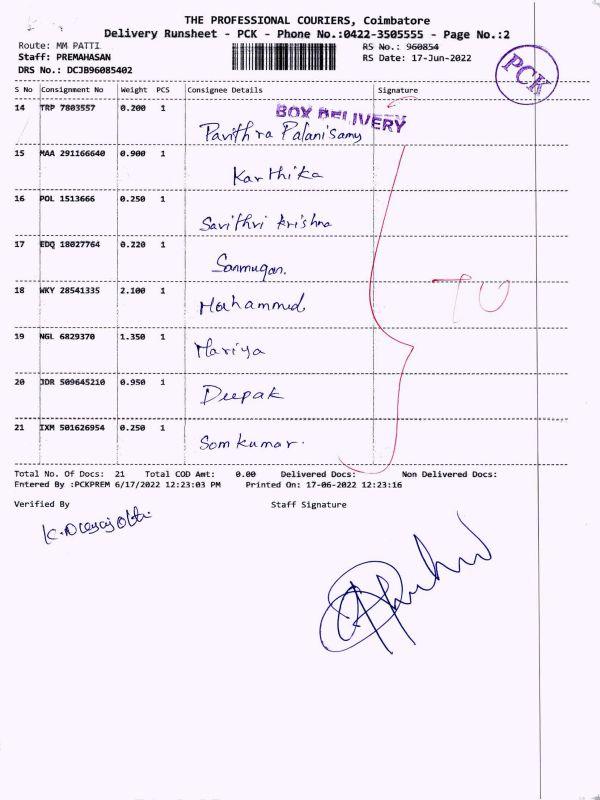 THE PROFESSIONAL COURIERS, Coimbatore
Delivery Runsheet - PCK - Phone No.:0422-3505555 - Page No.:2
Route: MM PATTI RS No.: 960854
Staff: PREMAHASAN RS Date: 17-Jun-2022
DRS No.: DCJB96085402
PCK
S No Consignment No Weight PCS Consignee Details Signature
14 TRP 7803557 0.200 1 BOX DELIVERY
Pavithra Palanisamy
15 MAA 291166640 0.900 1
Karthika
16 POL 1513666 0.250 1
Savithri krishna
17 EDQ 18027764 0.220 1
Sanmugan.
18 WKY 28541335 2.100 1
Mohammed
TU
19 NGL 6829370 1.350 1
Mariya
20 JDR 509645210 0.950 1
Deepak
21 IXM 501626954 0.250 1
Somkumar.
Total No. Of Docs: 21 Total COD Amt: 0.00 Delivered Docs: Non Delivered Docs:
Entered By :PCKPREM 6/17/2022 12:23:03 PM Printed On: 17-06-2022 12:23:16
Verified By Staff Signature